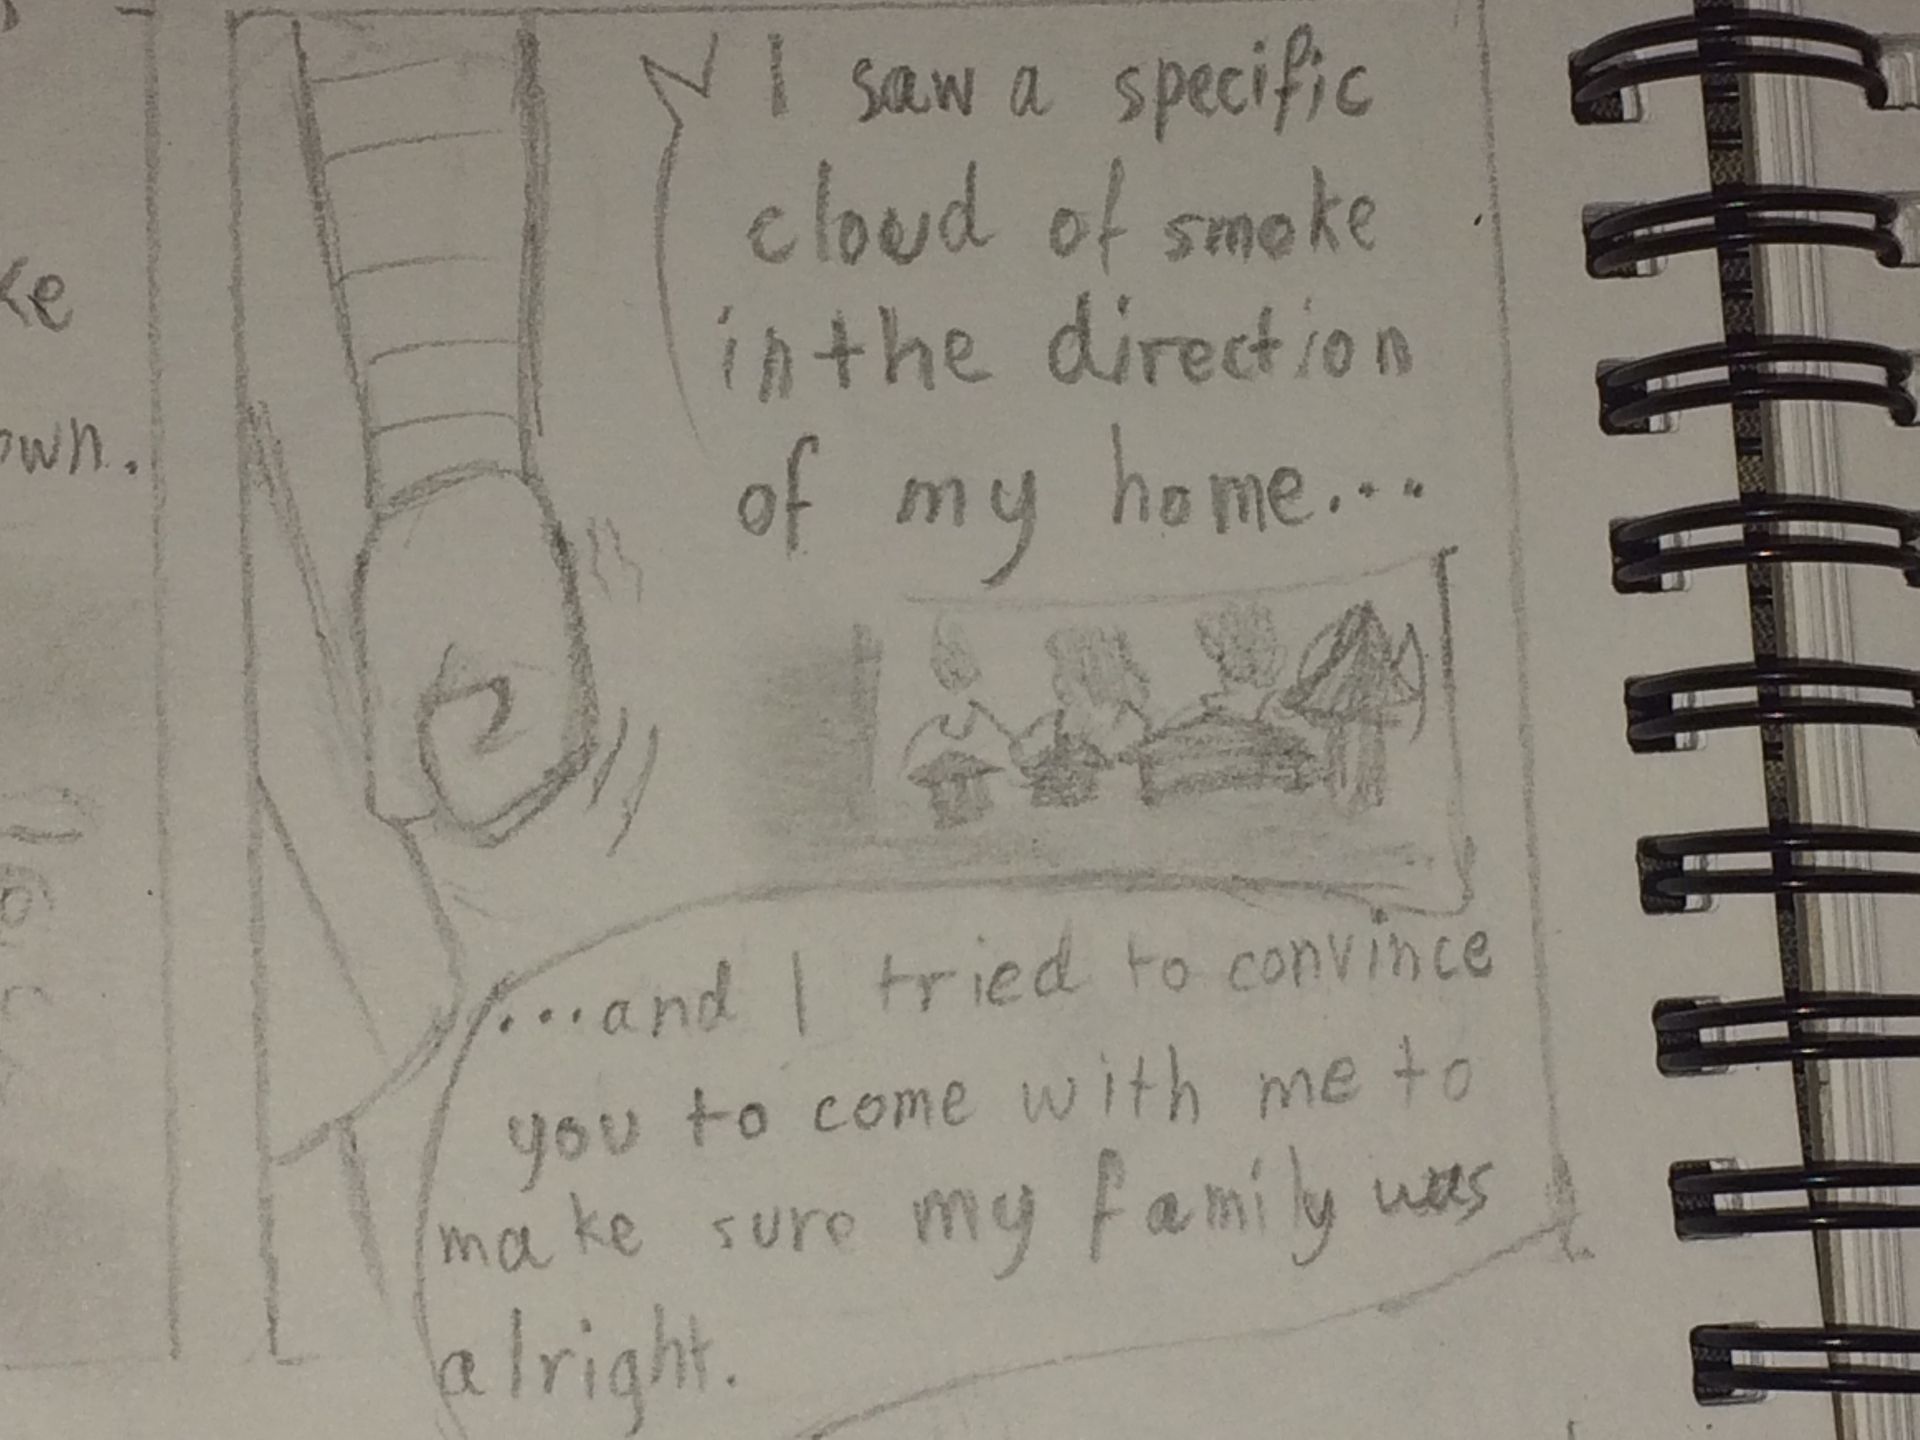 I saw a specific
cloud of smoke
in the direction
of my home...
...and I tried to convince
you to come with me to
make sure my family was
alright.
own.